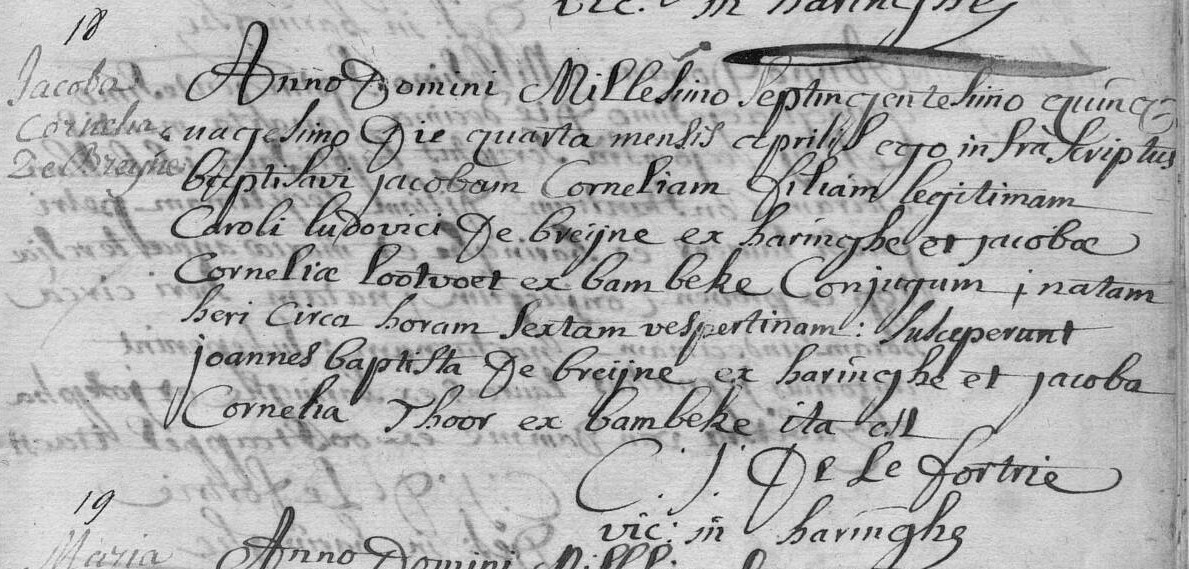 vic: in haringhe
18
Jacoba
Cornelia
De Breyne
Anno Domini Millesimo septingentesimo quinq
uagesimo Die quarta mensis aprilis ego infra scriptus
baptisavi jacobam Corneliam filiam legitimam
Caroli ludovici De breijne ex haringhe et jacobæ
Corneliæ Lootvoet ex bambeke Conjugum ; natam
heri circa horam sextam vespertinam : susceperunt
joannes baptista De breijne ex haringhe et jacoba
Cornelia Thoor ex bambeke ita est
C. J. De Le fortrie
vic: in haringhe
19
Maria
Anno Domini Mill